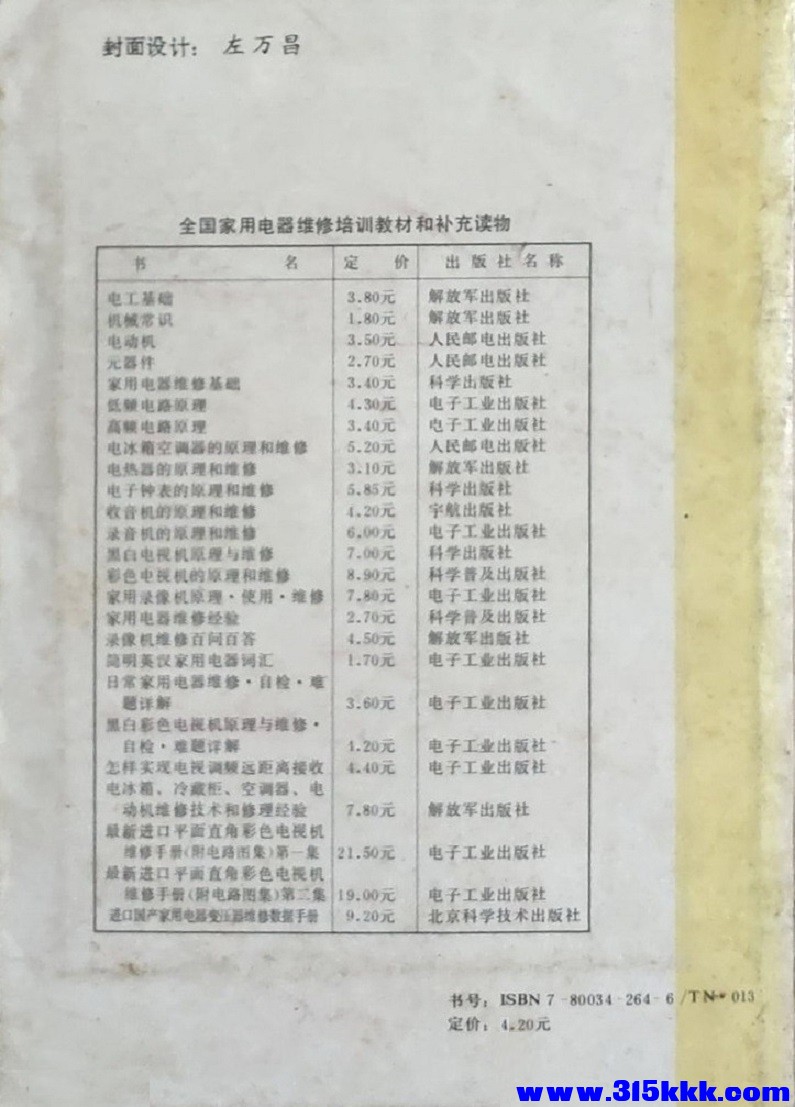 封面设计： 左万昌
全国家用电器维修培训教材和补充读物
书 名 定 价 出版社名称
电工基础 3.80元 解放军出版社
机械常识 1.80元 解放军出版社
电动机 3.50元 人民邮电出版社
元器件 2.70元 人民邮电出版社
家用电器维修基础 3.40元 科学出版社
低频电路原理 4.30元 电子工业出版社
高频电路原理 3.40元 电子工业出版社
电冰箱空调器的原理和维修 5.20元 人民邮电出版社
电热器的原理和维修 3.10元 解放军出版社
电子钟表的原理和维修 5.85元 科学出版社
收音机的原理和维修 4.20元 宇航出版社
录音机的原理和维修 6.00元 电子工业出版社
黑白电视机原理与维修 7.00元 科学出版社
彩色电视机的原理和维修 8.90元 科学普及出版社
家用录像机原理·使用·维修 7.80元 电子工业出版社
家用电器维修经验 2.70元 科学普及出版社
录像机维修百问百答 4.50元 解放军出版社
简明英汉家用电器词汇 1.70元 电子工业出版社
日常家用电器维修·自检·难
题详解 3.60元 电子工业出版社
黑白彩色电视机原理与维修·
自检·难题详解 4.20元 电子工业出版社
怎样实现电视调频远距离接收 4.40元 电子工业出版社
电冰箱、冷藏柜、空调器、电
动机维修技术和修理经验 7.80元 解放军出版社
最新进口平面直角彩色电视机
维修手册(附电路图集)第一集 21.50元 电子工业出版社
最新进口平面直角彩色电视机
维修手册(附电路图集)第二集 19.00元 电子工业出版社
进口国产家用电器变压器维修数据手册 9.20元 北京科学技术出版社
书号：ISBN 7-80034-264-6/TN·013
定价：4.20元
www.315kkk.com